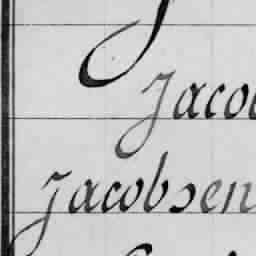 Jacob
Jacobsen